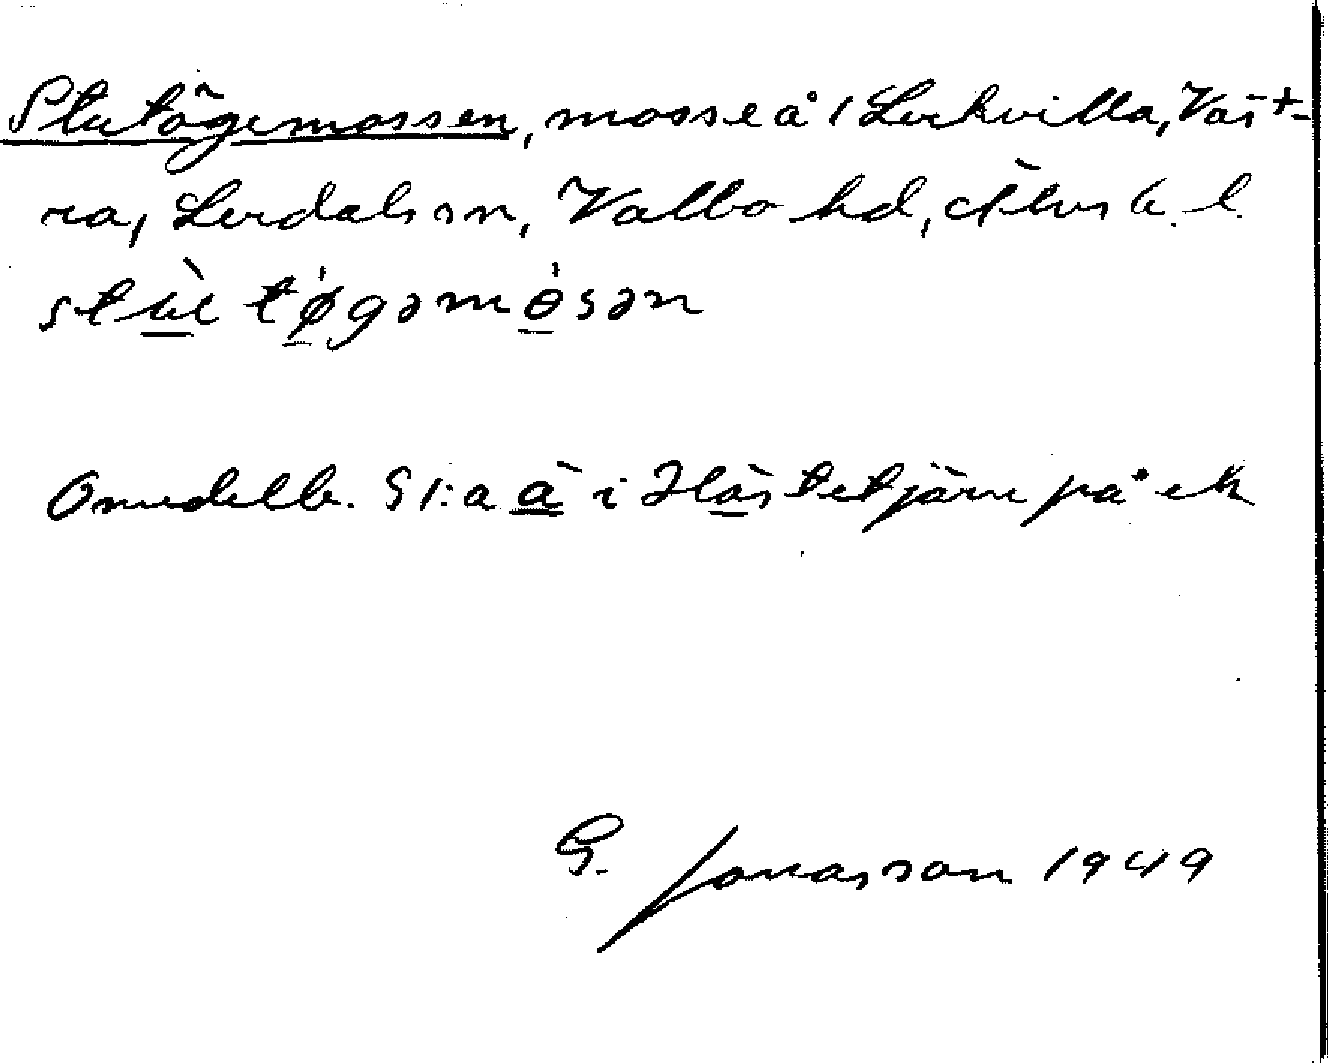 Stutögemossen, mosse å 1 Lerkvilla, Väst-
ra, Lerdals sn, Valbo hd, Älvsb. l.
Omedelb. S 1:a a i Hästetjärn på ek
G. Jonasson 1949